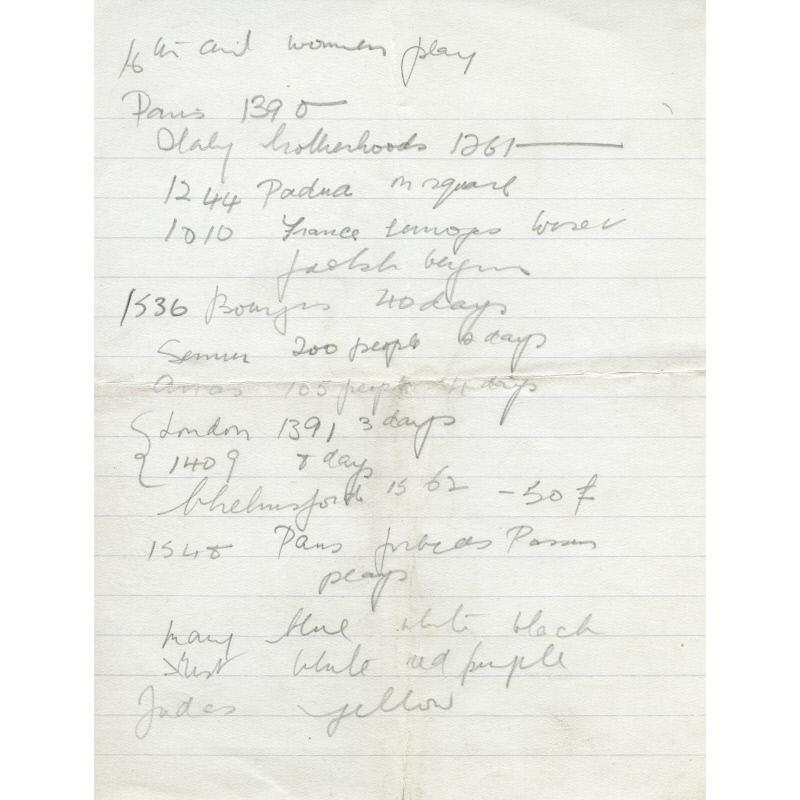 16th and women play
Paris 1398
Italy brotherhoods 1261
1244 Padua in square
1010 France Limoges
begins
1536 Bourges 40 days
Semur 200 people days
Arras 105 people 4 days
London 1391 3 days
1409 8 days
Chelmsford 1562 - 50 £
1548 Paris forbids Passion
plays
Mary blue white black
Xrist white red purple
Judas yellow